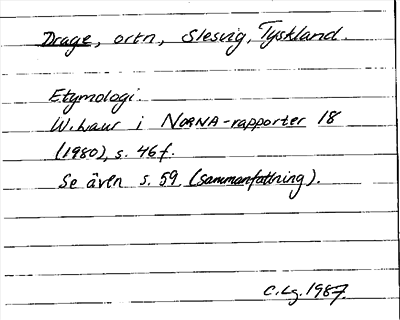 Drage, ortn, Slesvig, Tyskland.
Etymologi.
W. Laur i NORNA-rapporter 18
(1980), s. 46 f.
Se även s. 59 (sammanfattning).
C.Lg. 1987.